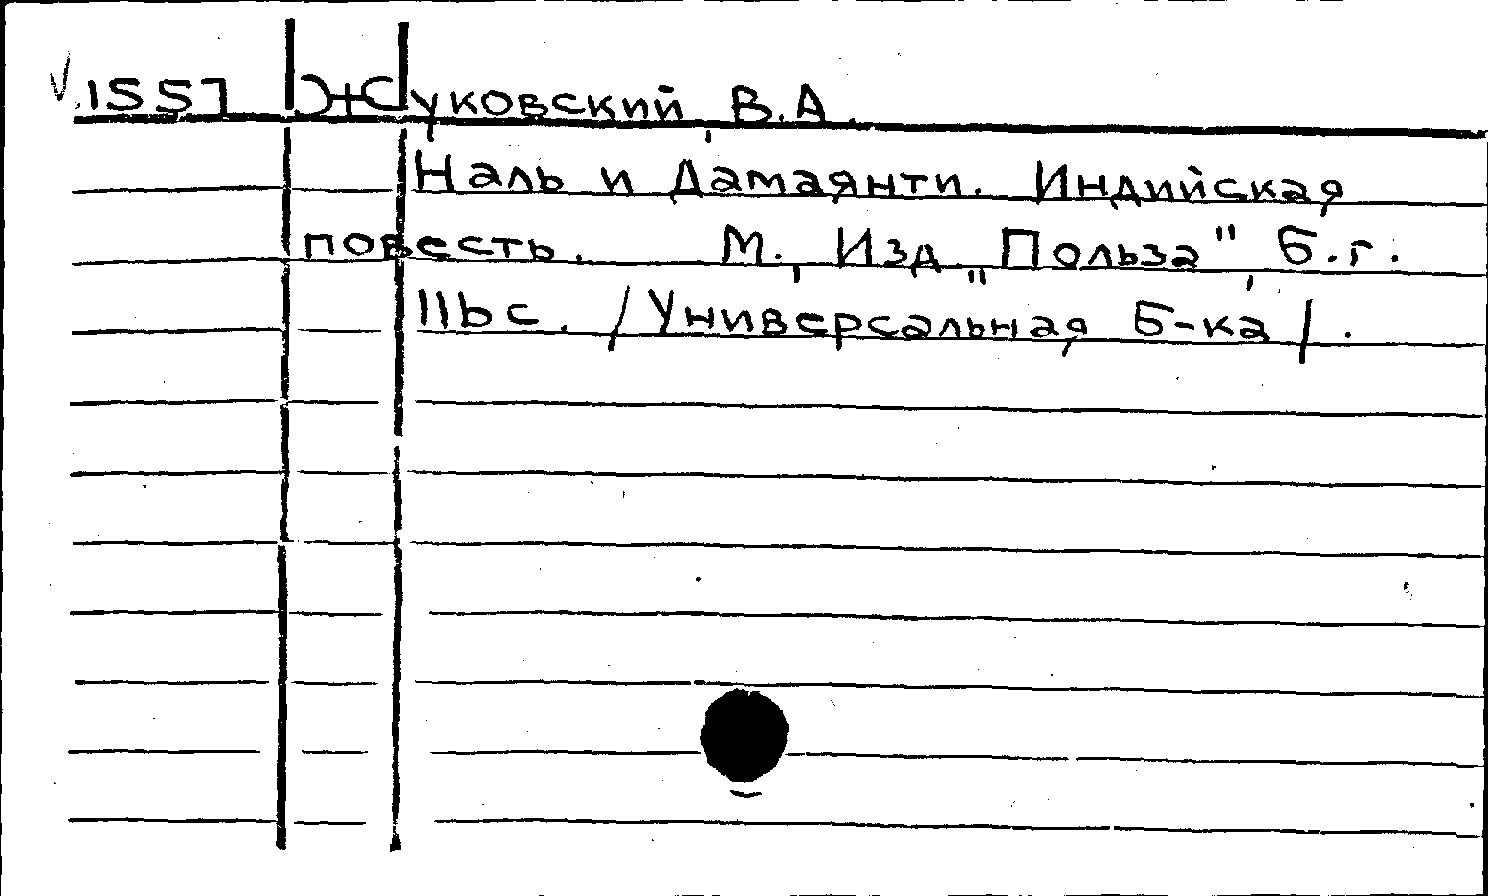 1557 Жуковский, В.А.
Наль и Дамаянти. Индийская
повесть. М., Изд. „Польза", б.г.
116 с. /Универсальная б-ка/.